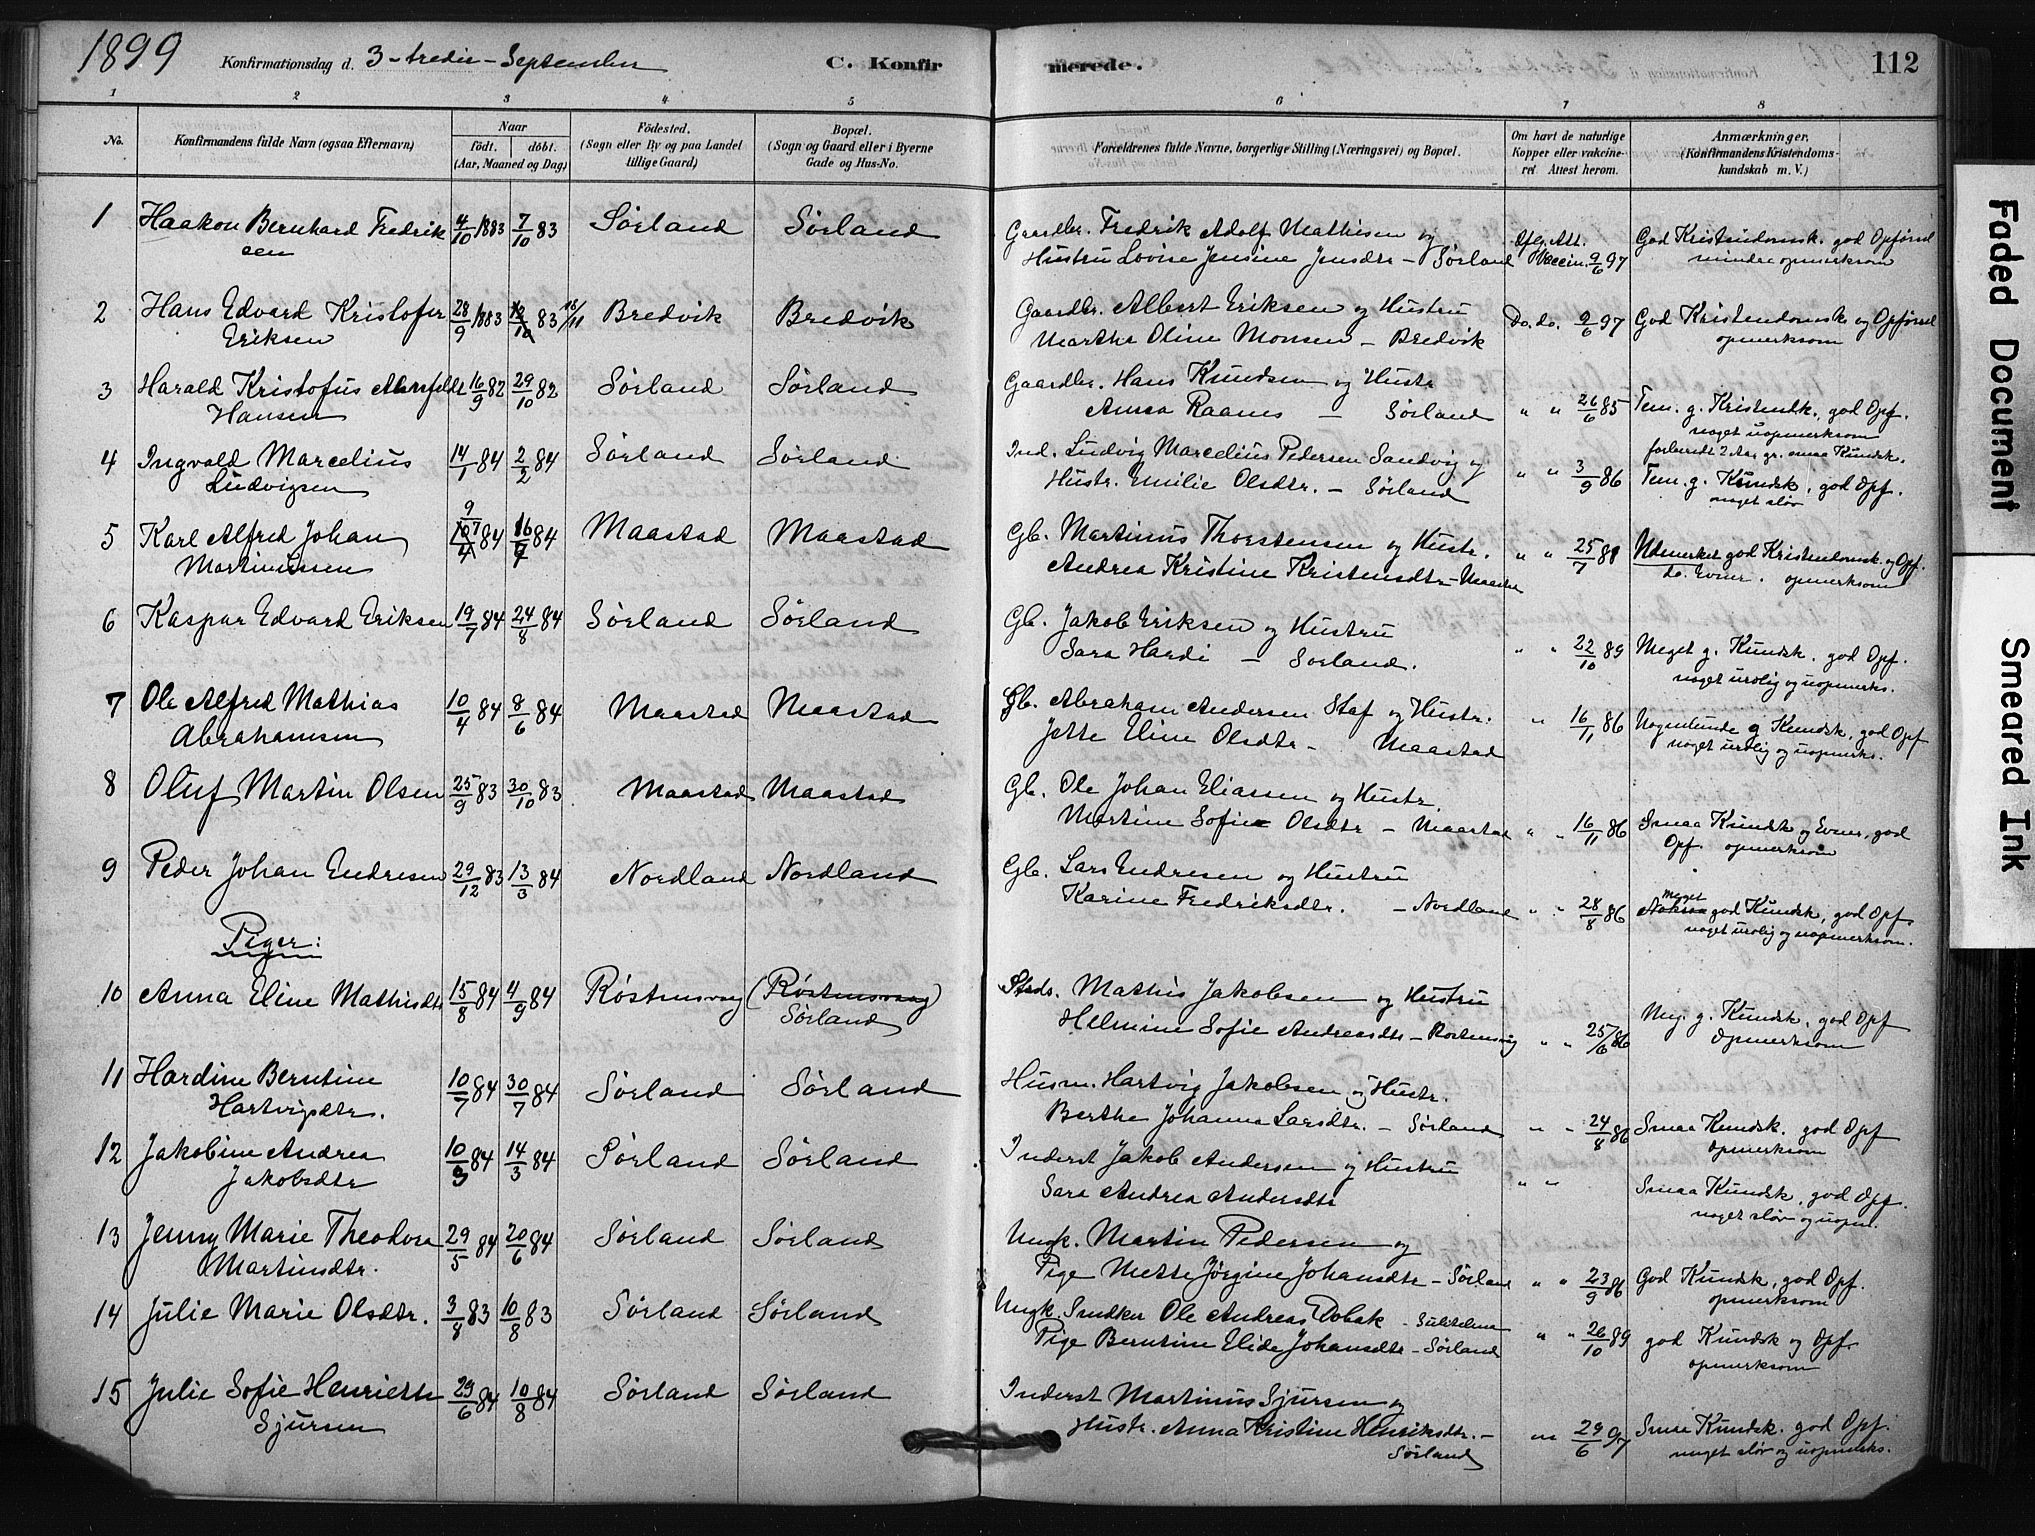 1899 Konfirmationsdag d. 3-tredie-September C. Konfir merede. 112
1 2 3 4 5 6 7 8
No. Konfirmandens fulde Navn (ogsaa Efternavn) Naar födt. döbt. (Aar, Maaned og Dag) Födested. (Sogn eller By og paa Landet tillige Gaard) Bopæl. (Sogn og Gaard eller i Byerne Gade og Hus-No. Forældrenes fulde Navne, borgerlige Stilling (Næringsvei) og Bopæl. Om havt de naturlige Kopper eller vakcineret. Attest herom. Anmærkninger. (Konfirmandens Kristendomskundskab m. V.)
1 Haakon Bernhard Fredrik 4/10 1883 7/10 83 Sörland Sörland Gaardbr. Fredrik Adolf Mathisen og Afg. Att. God Kristendomsk. god Opførsel
sen Hustru Lovise Jensine Jensdtr - Sörland Vaccin. 9/6 97 mindre opmerksom
2 Hans Edvard Kristofer 28/9 1883 83 18/11 Bredvik Bredvik Gaardbr. Albert Eriksen og Hustru Do. do. 9/6 97 God Kristendomsk og Opførsel
Eriksen Marthe Oline Monsen - Bredvik opmerksom
3 Harald Kristofus 16/9 82 29/10 82 Sörland Sörland Gaardbr. Hans Knudsen og Hustr
Hansen Anna Raanes - Sörland " " 26/6 85 Tem. g. Kristendk., god Opf.
noget uopmerksom
4 Ingvald Marcelius 14/1 84 2/2 84 Sörland Sörland Ind. Ludvig Marcelius Pedersen Sandvig og forberedt 2 Aar gr. smaa Kundsk.
Ludvigsen Hustr. Emilie Olsdtr. - Sörland " " 3/9 86 Tem. g. Kundsk, god Opf.
noget sløv
5 Karl Alfred Johan 84 84 Maastad Maastad Gb. Martinus Thorstensen og Hustr. " " 25/7 Udmerket god Kristendomsk. og Opf.
Martinussen Andrea Kristine Kristensdtr - Maastad do. Evner. opmerksom
6 Kaspar Edvard Eriksen 19/7 84 24/8 84 Sörland Sörland Gb. Jakob Eriksen og Hustru
Sara Hardi - Sörland. " " 22/10 89 Meget g. Kundsk. god Opf.
noget urolig og uopmerks.
7 Ole Alfred Mathias 10/4 84 8/6 84 Maastad Maastad Gb. Abraham Andersen Staf og Hustr. " 16/11 86 Nogenlunde g Kundsk, god Opf
Abrahamsen Jette Eline Olsdtr - Maastad noget urolig og uopmerks.
8 Oluf Martin Olsen 25/9 83 30/10 83 Maastad Maastad Gb. Ole Johan Eliassen og Hustr.
Martine Sofie Olsdtr - Maastad " " 16/11 86 Smaa Kundsk og Evner, god
Opf. opmerksom
9 Peder Johan Endresen 29/12 83 13/3 84 Nordland Nordland Gb. Lars Endresen og Hustru
Karine Fredriksdtr. - Nordland " " 28/8 86 meget god Kundsk, god Opf
noget urolig og uopmerksom.
Piger:
10 Anna Eline Mathisdtr 15/8 84 4/9 84 Röstensvag (Röstensvag) Steds. Mathis Jakobsen og Hustru
Sörland Helmine Sofie Andreasdtr - " " 25/6 86 Meg. g. Kundsk, god Opf
Opmerksom
11 Hardine Berntine 10/7 84 30/7 84 Sörland Sörland Husm. Hartvig Jakobsen og Hustr.
Hartvigsdtr. Berthe Johanna Larsdtr. - Sörland " " 24/8 86 Smaa Kundsk. god Opf
opmerksom
12 Jakobine Andrea 84 14/3 84 Sörland Sörland Inderst Jakob Andersen og Hustru
Jakobsdtr Sara Andrea Andersdtr " " Smaa Kundsk, god Opf.
noget sløv og uopm.
13 Jenny Marie Theodora 29/5 84 20/6 84 Sörland Sörland Ungk. Martin Pedersen og
Martinsdtr. Pige Mette Jørgine Johansdtr - Sörland " " 23/9 86 God Kundsk, god Opf.
opmerksom
14 Julie Marie Olsdtr. 3/8 83 10/8 83 Sörland Sörland Ungk. Snedker Ole Andreas Dobak - Sulitelma
Pige Berntine Elide Johansdtr - Sörland " " 26/10 89 god Kundsk og Opf.
opmerksom
15 Julie Sofie Henriette 29/6 84 10/8 84 Sörland Sörland Inderst Martinus Sjursen og
Sjursen Hustr. Anna Kristine Henriksdtr. - " " 29/6 97 Smaa Kundsk. god Opf.
Sörland noget sløv og uopmerks.
Faded Document
Smeared Ink